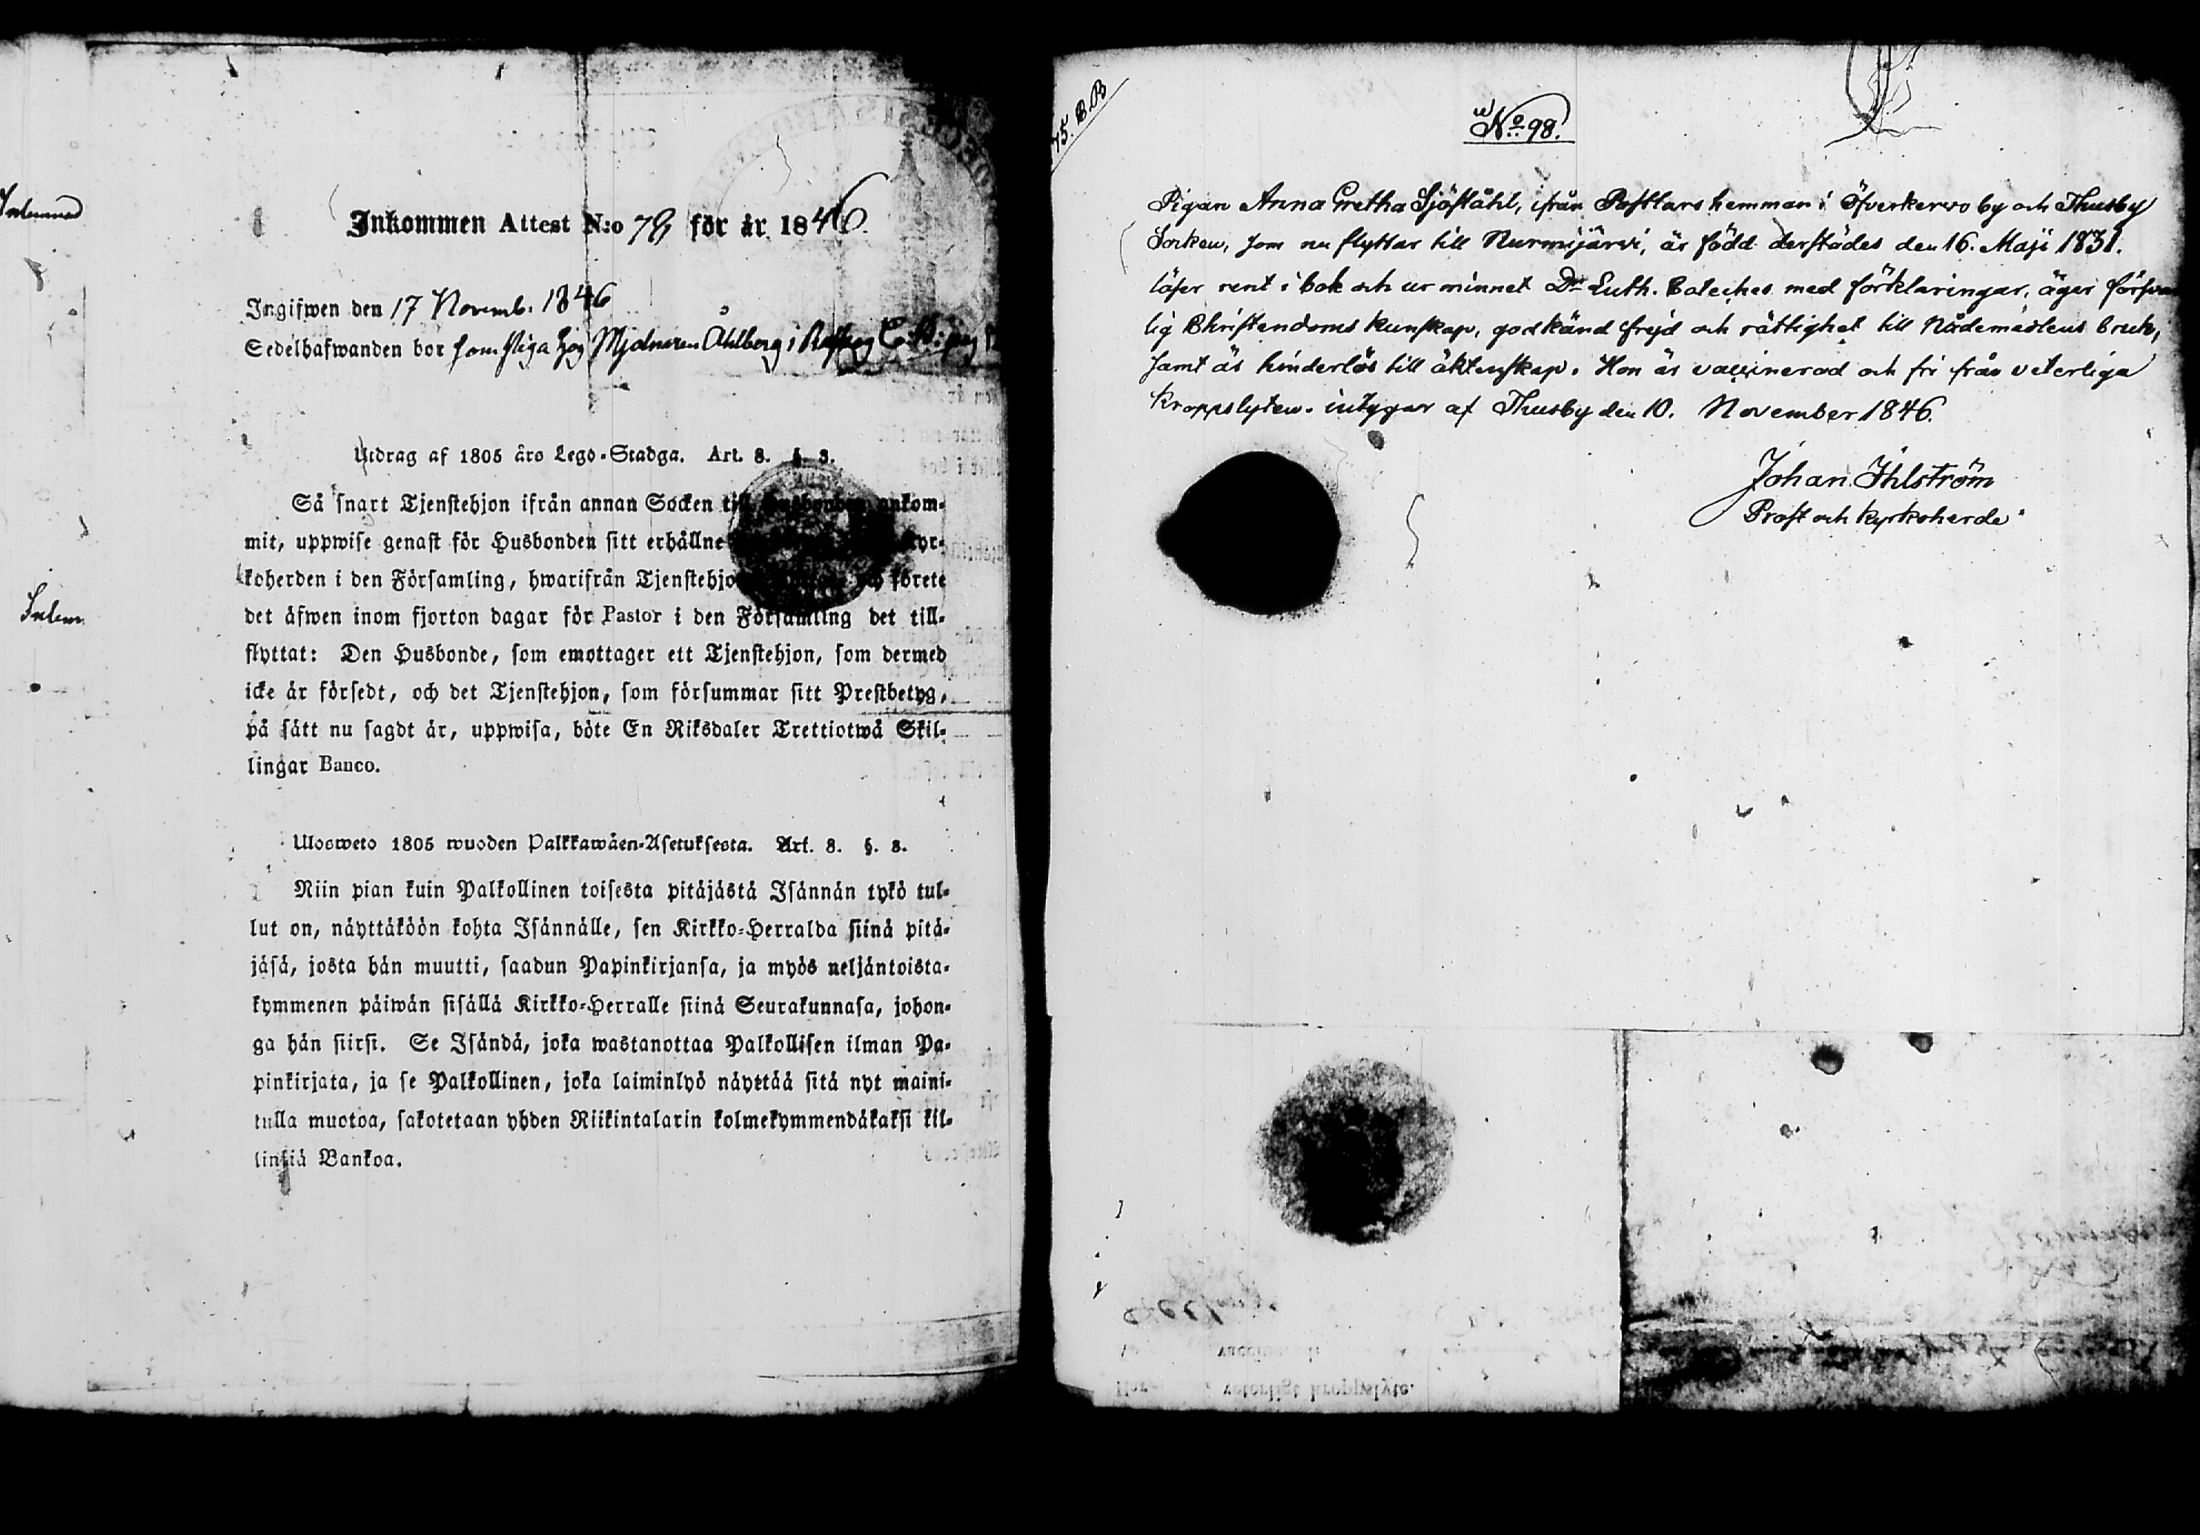 Inkommen Attest N:o 78 för år 1846.
Ingifwen den 17 Novemb. 1846
Sedelhafwanden bor som Piga hos Mjölnaren Åhlberg i
Utdrag af 1805 års Lego-Stadga. Art. 8. §. 3.
Så snart Tjenstehjon ifrån annan Socken till Husbonden ankom-
mit, uppwise genast för Husbonden sitt erhållne
koherden i den Församling, hwarifrån Tjenstehjo och förete
det äfwen inom fjorton dagar för Pastor i den Församling det till-
flyttat: Den Husbonde, som emottager ett Tjenstehjon, som dermed
icke är försedt, och det Tjenstehjon, som försummar sitt Prestbetyg,
på sätt nu sagdt är, uppwisa, böte En Riksdaler Trettiotwå Skil-
lingar Banco.
Ulosweto 1805 wuoden Palkkawäen-Asetuksesta. Art. 8. §. 3.
Niin pian kuin Palkollinen toisesta pitäjästä Isännän tykö tul-
lut on, näyttäköön kohta Isännälle, sen Kirkko-Herralda siinä pitä-
jäsä, josta hän muutti, saadun Papinkirjansa, ja myös neljäntoista-
kymmenen päiwän sisällä Kirkko-Herralle siinä Seurakunnasa, johon-
ga hän siirsi. Se Isändä, joka wastanottaa Palkollisen ilman Pa-
pinkirjata, ja se Palkollinen, joka laiminlyö näyttää sitä nyt maini-
tulla muotoa, sakotetaan yhden Riikintalarin kolmekymmendäkaksi kil-
linkiä Bankoa.
75. B.B
No 98.
Pigan Anna Gretha Sjöståhl, ifrån Postlars hemman i Öfverkervo by och Thusby
Socken, som nu flyttar till Nurmijärvi, är född derstädes den 16. Maji 1831.
läser rent i bok och ur minnet Dr Luth. Cateches med förklaringar, äger försvar
lig Christendoms kunskap, godkänd frejd och rättighet till Nådemedlens bruk,
samt är hinderlös till äktenskap. Hon är vaccinerad och fri från veterliga
kroppslyten. intygar af Thusby den 10. November 1846.
Johan Ihlström
Prost och kyrkoherde
vaccinerad:
veterligt kroppslyte.